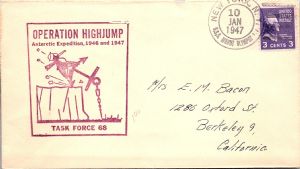 OPERATION HIGHJUMP
Antarctic Expedition, 1946 and 1947
TASK FORCE 68
NEW YORK, N.Y.
10
JAN
1947
3 CENTS 3
M/s E. M. Bacon
1286 Oxford St.
Berkeley 9,
California.